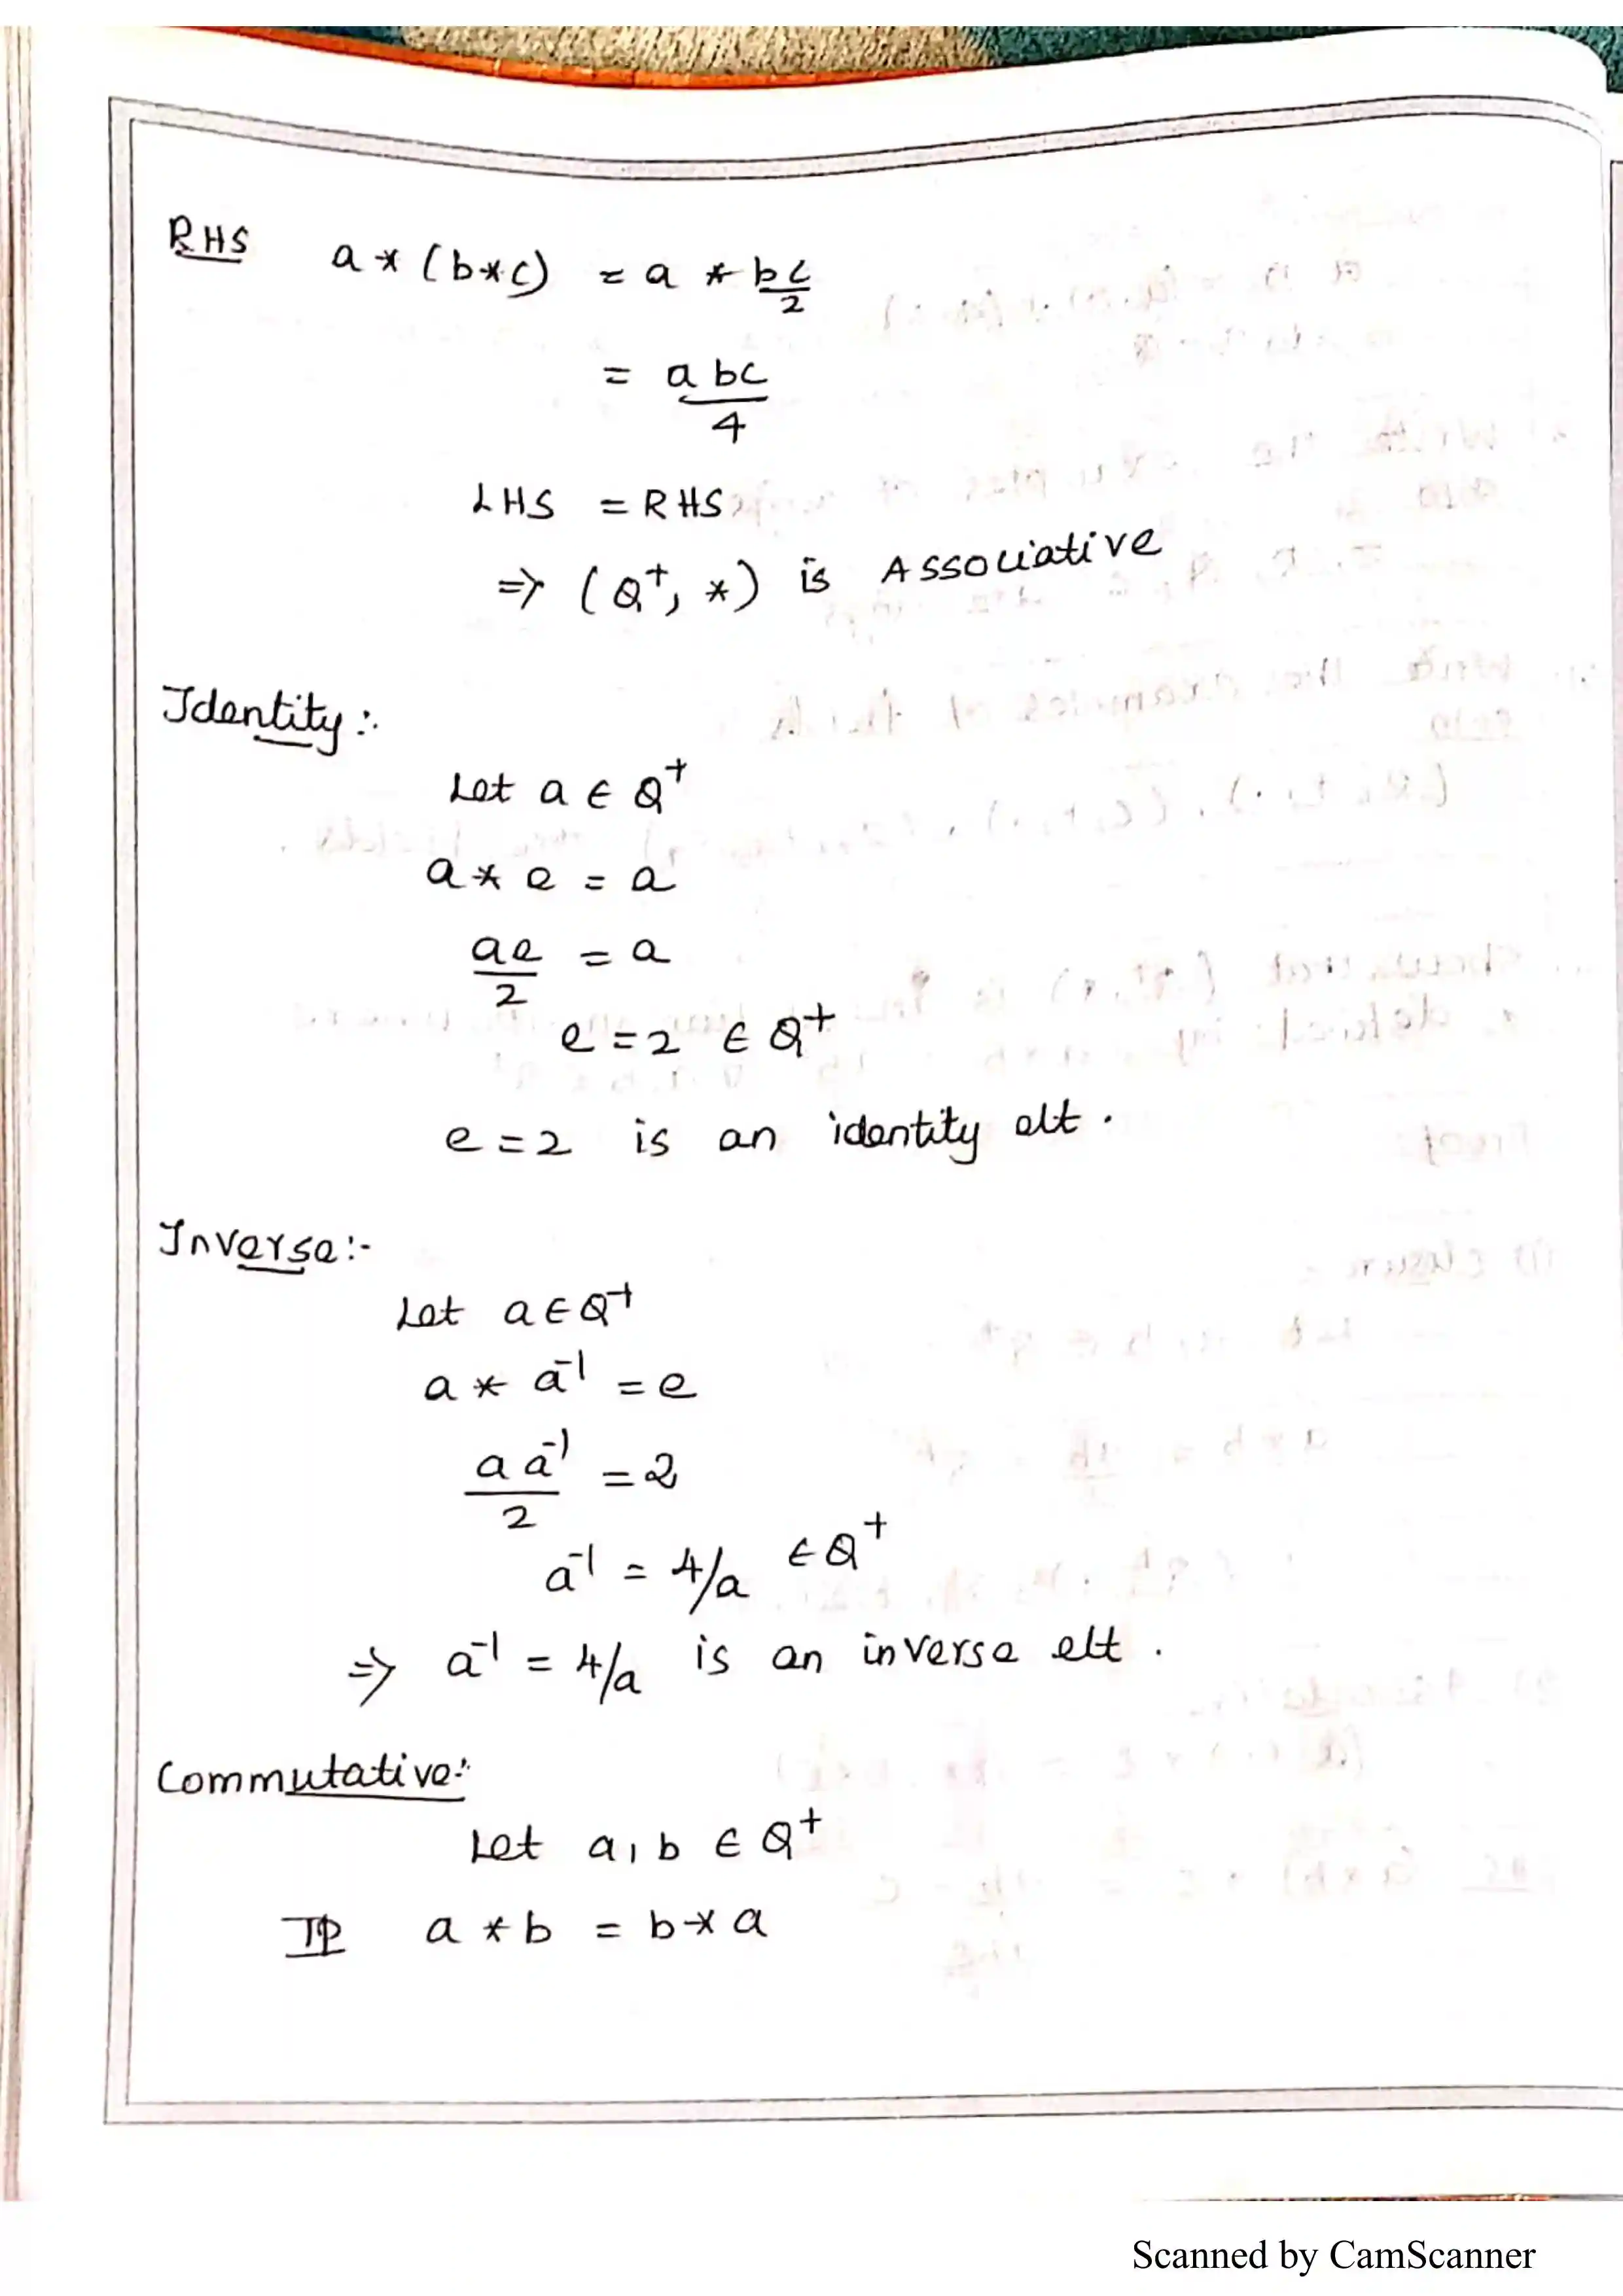 RHS a * (b*c) = a * bc/2
= abc/4
LHS = RHS
⇒ (Q⁺, *) is Associative
Identity :-
Let a ∈ Q⁺
a * e = a
ae/2 = a
e = 2 ∈ Q⁺
e = 2 is an identity elt .
Inverse :-
Let a ∈ Q⁺
a * a⁻¹ = e
a a⁻¹/2 = 2
a⁻¹ = 4/a ∈ Q⁺
⇒ a⁻¹ = 4/a is an inverse elt .
Commutative :-
Let a, b ∈ Q⁺
TP a * b = b * a
Scanned by CamScanner